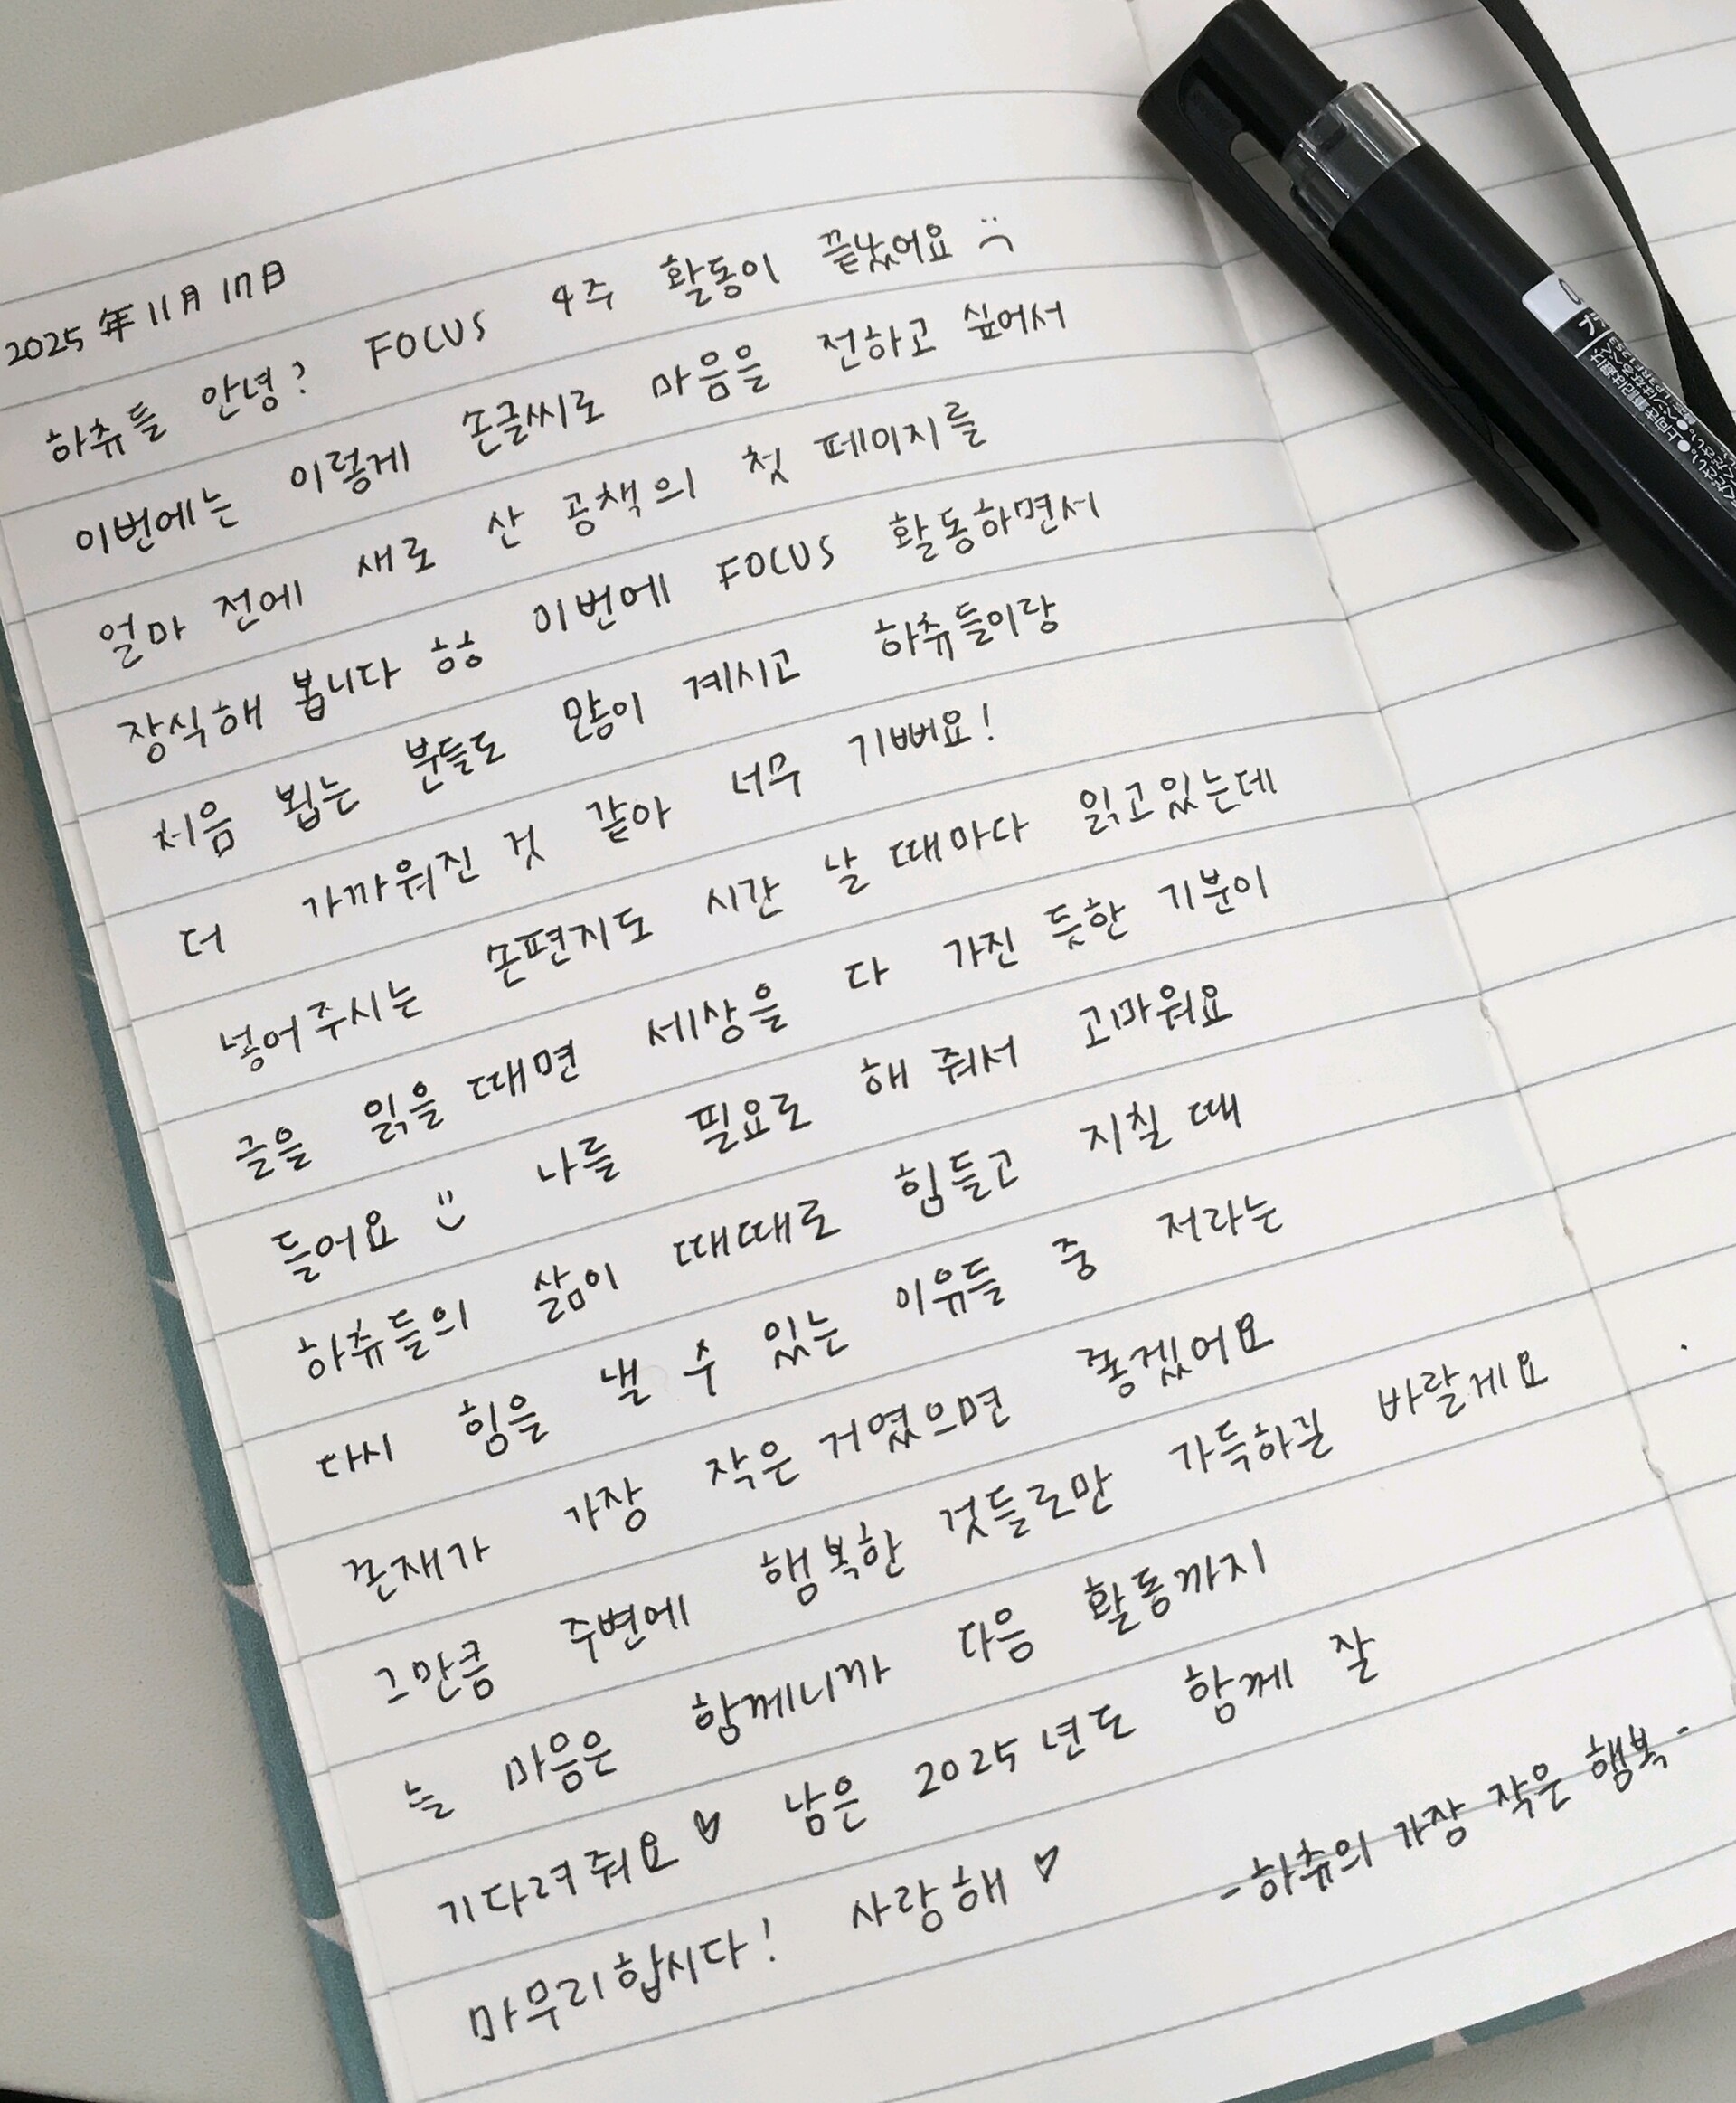 2025年11月17日
하츄들 안녕? FOCUS 4주 활동이 끝났어요 :(
이번에는 이렇게 손글씨로 마음을 전하고 싶어서
얼마 전에 새로 산 공책의 첫 페이지를
장식해 봅니다 ㅎㅎ 이번에 FOCUS 활동하면서
처음 뵙는 분들도 많이 계시고 하츄들이랑
더 가까워진 것 같아 너무 기뻐요!
넣어주시는 손편지도 시간 날 때마다 읽고있는데
글을 읽을 때면 세상을 다 가진 듯한 기분이
들어요 :) 나를 필요로 해 줘서 고마워요
하츄들의 삶이 때때로 힘들고 지칠 때
다시 힘을 낼 수 있는 이유들 중 저라는
존재가 가장 작은 거였으면 좋겠어요
그만큼 주변에 행복한 것들로만 가득하길 바랄게요
늘 마음은 함께니까 다음 활동까지
기다려줘요♡ 남은 2025년도 함께 잘
마무리합시다! 사랑해♡
-하츄의 가장 작은 행복-